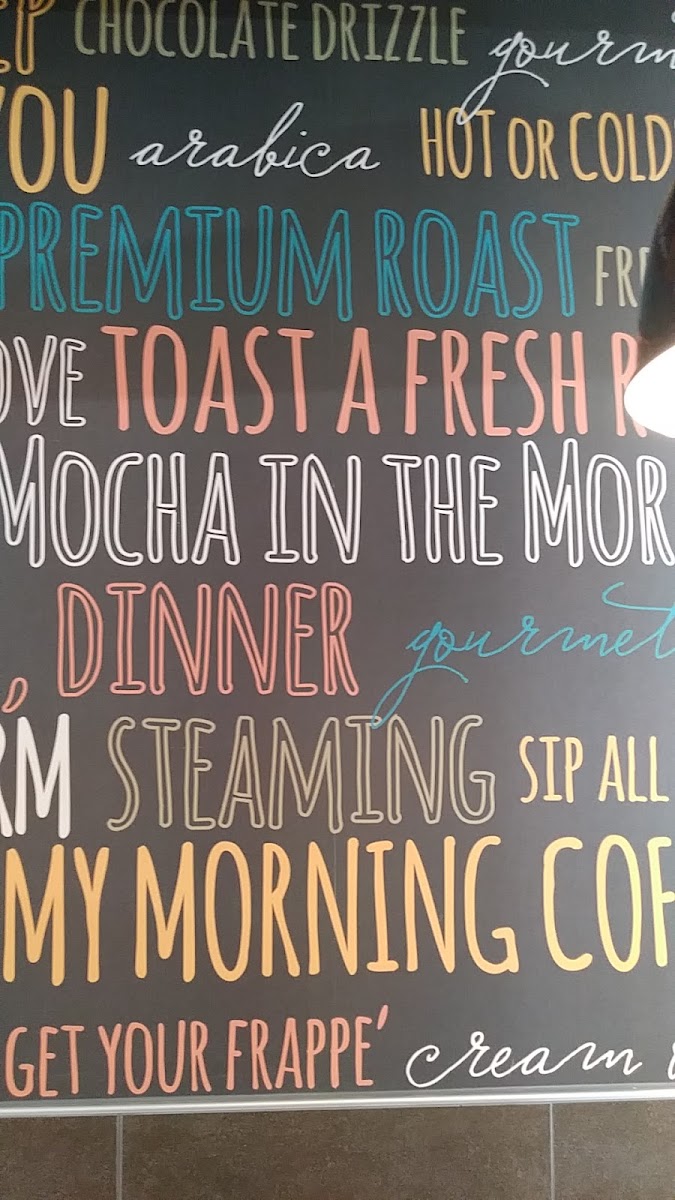 CHOCOLATE DRIZZLE
YOU arabica HOT OR COLD
PREMIUM ROAST
TOAST A FRESH
MOCHA IN THE
, DINNER gourmet
STEAMING SIP ALL
MY MORNING
GET YOUR FRAPPE' cream